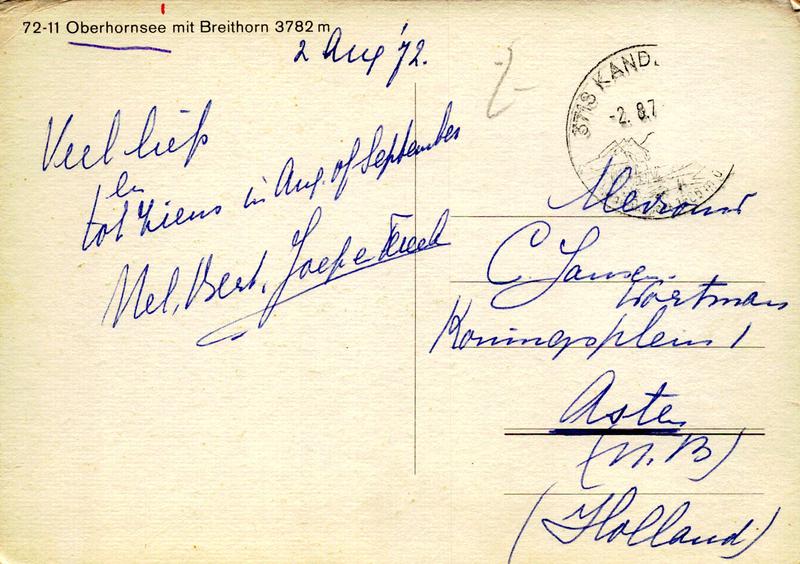 72-11 Oberhornsee mit Breithorn 3782 m
2 Aug '72.
Veel liefs
en
tot ziens in Aug. of September
Nel, Bert, Joep e
3718 KAND
-2. 8.7
Mevrouw
C. Jansen
Wortman
Koningsplein 1
Asten
(N.B)
(Holland)